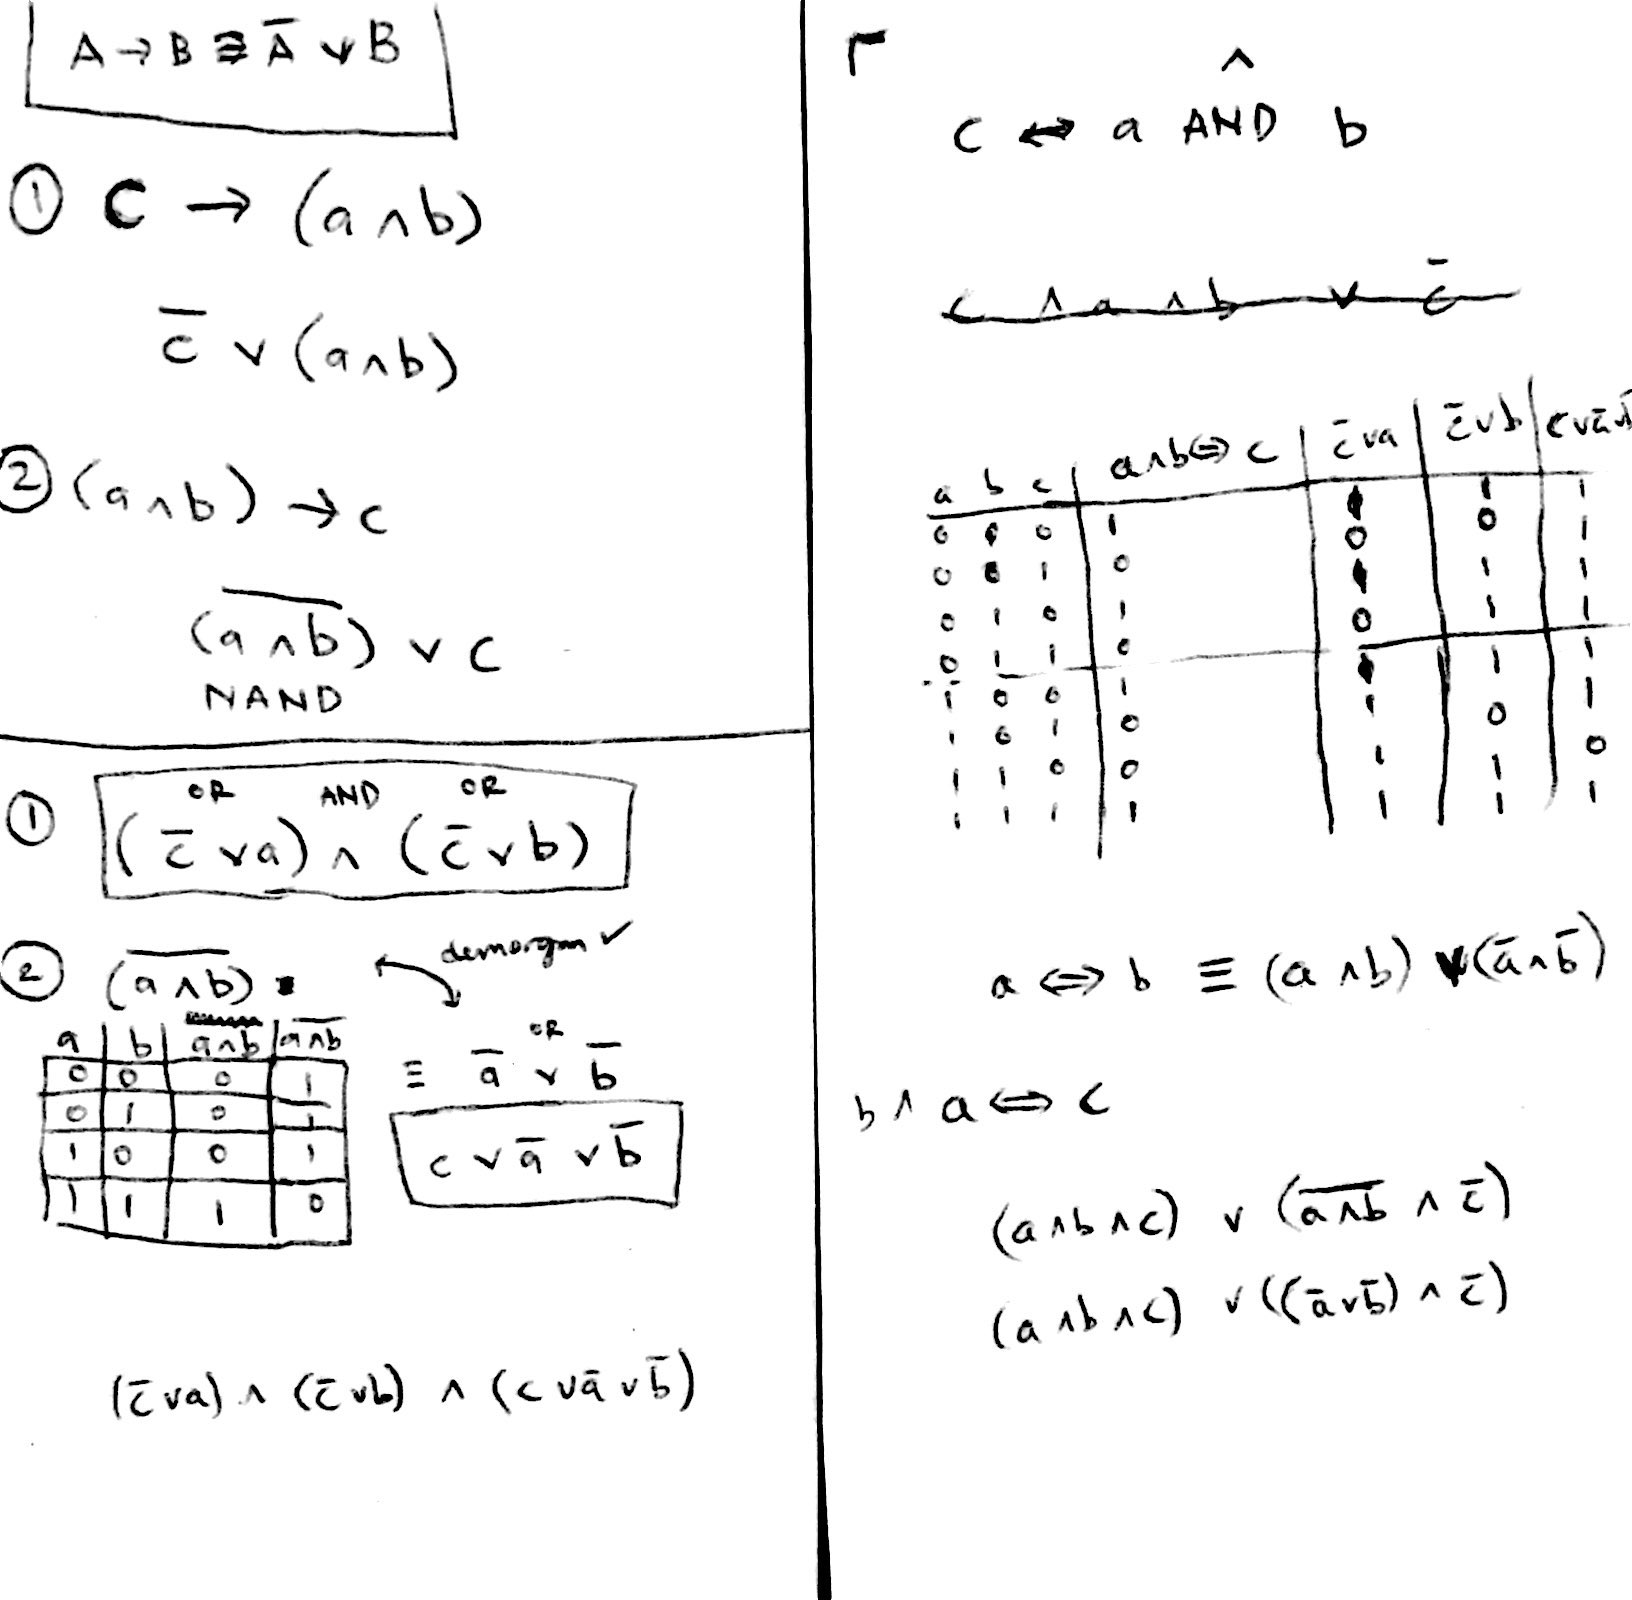 A → B ≡ A̅ ∨ B
① C → (a ∧ b)
c̅ ∨ (a ∧ b)
② (a ∧ b) → c
(a̅ ̅∧̅ ̅b̅) ∨ c
NAND
① OR AND OR
(c̅ ∨ a) ∧ (c̅ ∨ b)
② (a̅ ̅∧̅ ̅b̅)
demorgan ✓
a b a∧b a̅∧̅b̅
0 0 0 1
0 1 0 1
1 0 0 1
1 1 1 0
OR
≡ a̅ ∨ b̅
c ∨ a̅ ∨ b̅
(c̅ ∨ a) ∧ (c̅ ∨ b) ∧ (c ∨ a̅ ∨ b̅)
∧
c ↔ a AND b
c ∧ a ∧ b ∨ c̅
a b c a∧b⇔c c̅∨a c̅∨b
0 0 0 1 1 1 1
0 0 1 0 0 0 1
0 1 0 1 1 1 1
0 1 1 0 0 1 1
1 0 0 1 1 1 1
1 0 1 0 1 0 1
1 1 0 0 1 1 0
1 1 1 1 1 1 1
a ⇔ b ≡ (a ∧ b) ∨ (a̅ ∧ b̅)
b ∧ a ⇔ c
(a ∧ b ∧ c) ∨ (a̅ ̅∧̅ ̅b̅ ∧ c̅)
(a ∧ b ∧ c) ∨ ((a̅ ∨ b̅) ∧ c̅)